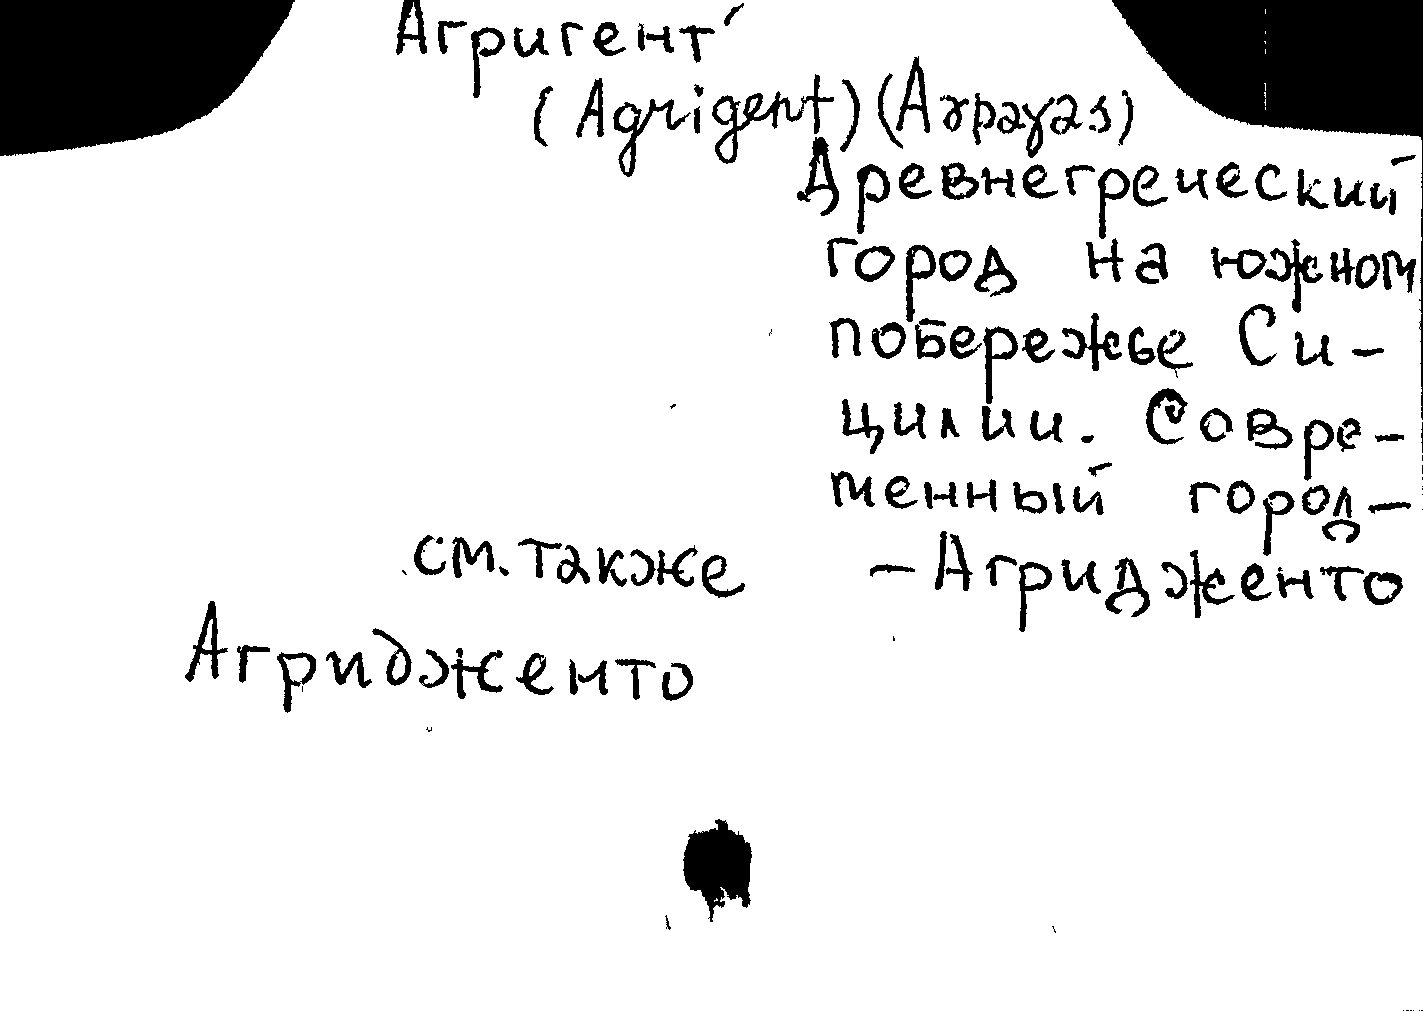 Агригент
(Agrigent) (Ἀκράγας)
Древнегреческий
город на южном
побережье Си-
цилии. Совре-
менный город-
- Агридженто
см. также
Агридженто